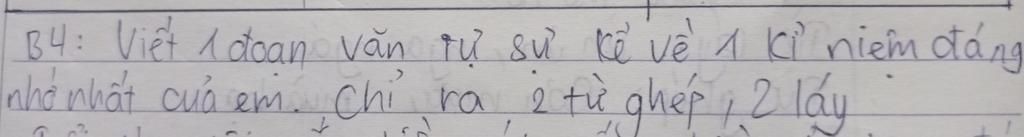 B4: Viết 1 đoạn văn tự sự kể về 1 kỉ niệm đáng
nhớ nhất của em. Chỉ ra 2 từ ghép, 2 láy